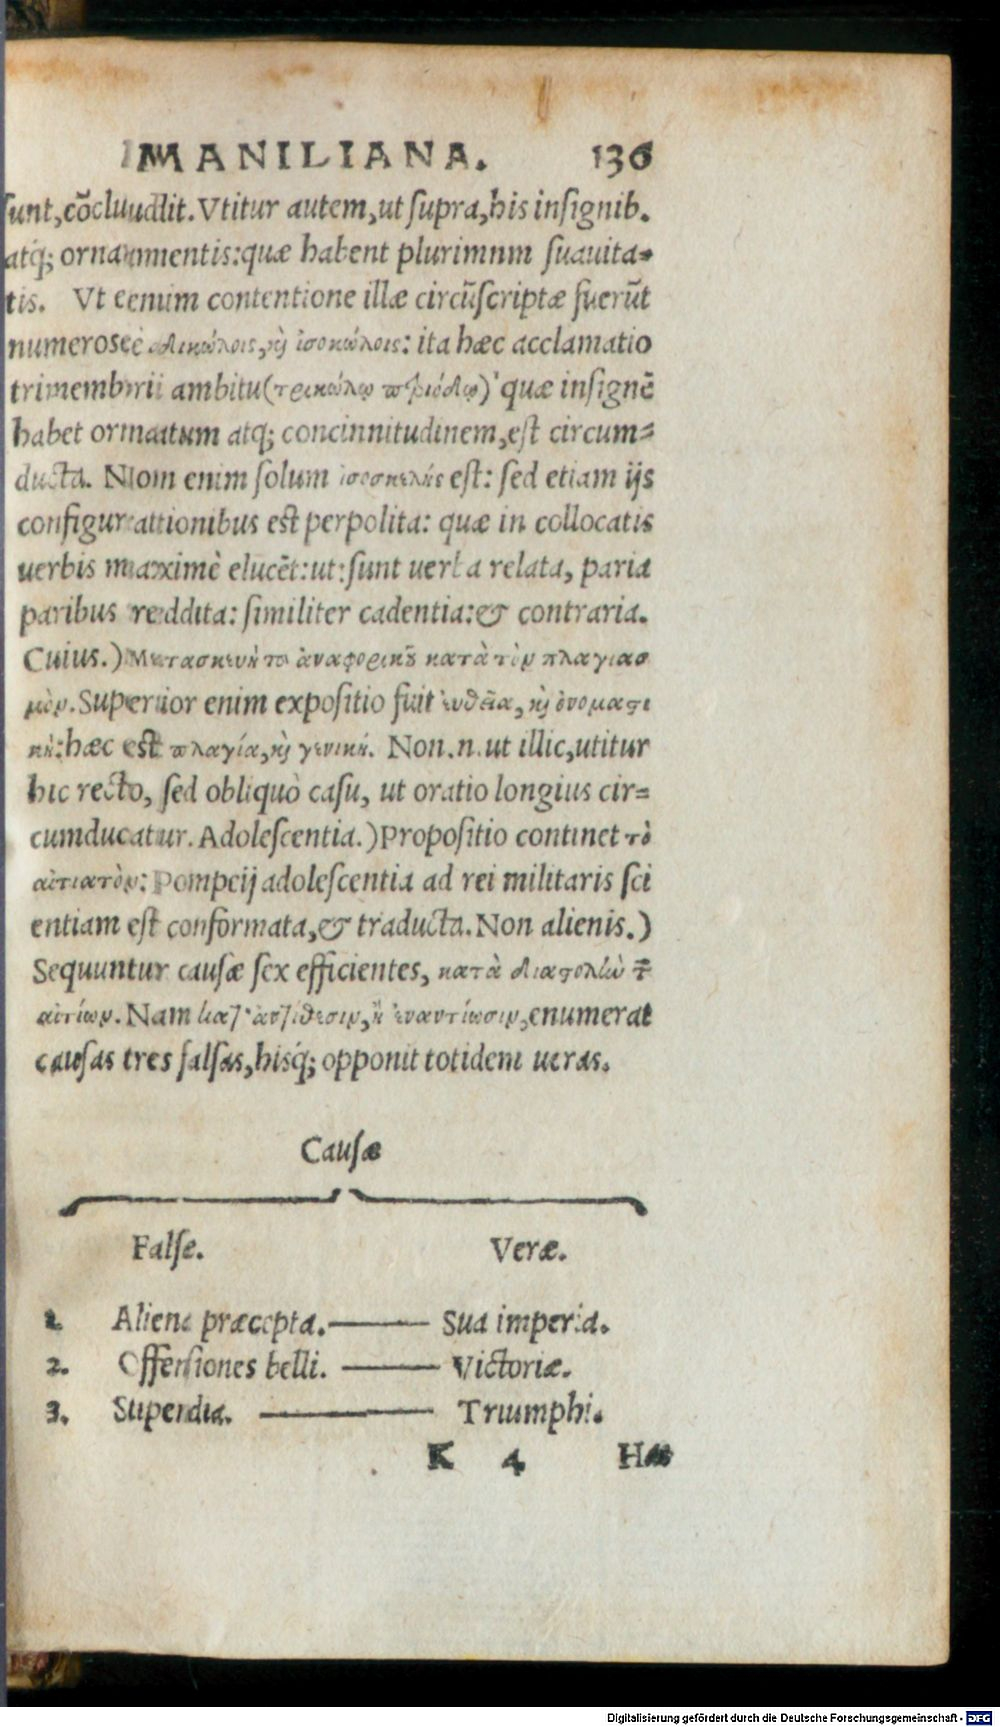 MANILIANA. 136
sunt, cõcludit. Vtitur autem, ut supra, his insignib.
atq; ornamentis: quæ habent plurimum suauita-
tis. Vt enim contentione illæ circũscriptæ fuerũt
numerosè δικώλοις, κỳ ἰσοκώλοις: ita hæc acclamatio
trimembrii ambitu (τρικώλῳ περιόδῳ) quæ insignẽ
habet ornatum atq; concinnitudinem, est circum=
ducta. Nom enim solum ἰσοσκελὴς est: sed etiam ijs
configurationibus est perpolita: quæ in collocatis
uerbis maximè elucẽt: ut: sunt uerba relata, paria
paribus reddita: similiter cadentia: & contraria.
Cuius.) Μετασκευὴ τοῦ ἀναφορικοῦ κατὰ τὸν πλαγιασ
μὸν. Superior enim expositio fuit εὐθεῖα, καὶ ὀνομαστι
κὴ: hæc est πλαγία, καὶ γενική. Non.n. ut illic, utitur
hic recto, sed obliquò casu, ut oratio longius cir=
cumducatur. Adolescentia.) Propositio continet τὸ
αἰτιατὸν: Pompeij adolescentia ad rei militaris sci
entiam est conformata, & traducta. Non alienis.)
Sequuntur causæ sex efficientes, κατὰ διαστολὴν τῶν
αἰτίων. Nam κατ' ἀντίθεσιν, ἢ ἐναντίωσιν, enumerat
causas tres falsas, hisq́; opponit totidem ueras.
Causæ
False. Veræ.
1. Aliena præcepta. Sua imperia.
2. Offensiones belli. Victoriæ.
3. Stipendia. Triumphi.
K 4
Digitalisierung gefördert durch die Deutsche Forschungsgemeinschaft - DFG